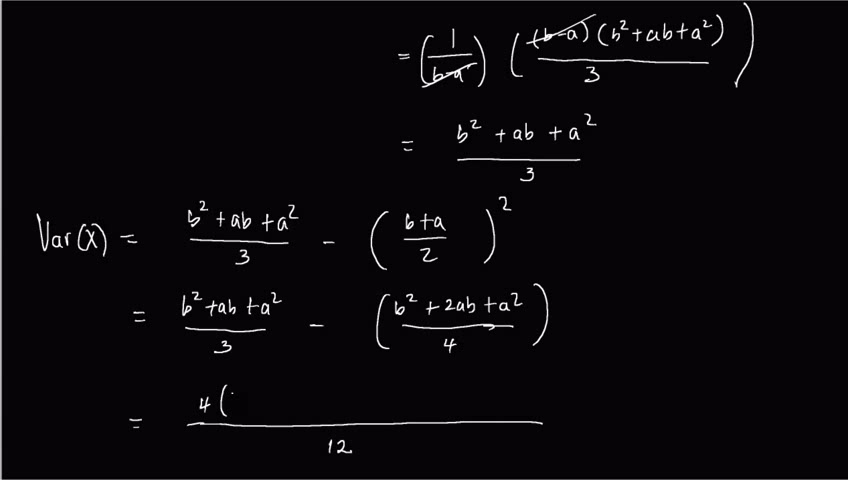 = (1/(b-a)) ((b-a)(b²+ab+a²)/3)
= (b² + ab + a²)/3
Var(X) = (b² + ab + a²)/3 - ((b+a)/2)²
= (b² + ab + a²)/3 - ((b² + 2ab + a²)/4)
= 4(/12